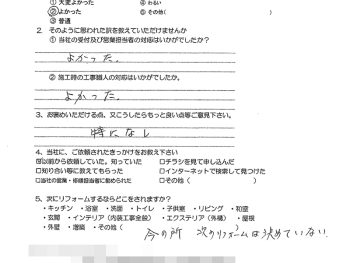 ① 大変よかった ④ わるい
②よかった ⑤ その他( )
③ 普通
2. そのように思われた訳を教えていただけませんか
① 当社の受付及び営業担当者の対応はいかがでしたか?
よかった.
② 施工時の工事職人の対応はいかがでしたか。
よかった.
3. お褒めいただける点、又こうしたらもっと良い点等ご意見下さい。
特になし
4. 当社に、ご依頼されたきっかけをお教え下さい
☑以前から依頼していた。知っていた □チラシを見て申し込んだ
□知り合い等に教えてもらった □インターネットで検索して見つけた
□当社の営業・修繕担当者に勧められた □その他( )
5. 次にリフォームするならどこをされますか?
・キッチン ・浴室 ・洗面 ・トイレ ・子供室 ・リビング ・和室
・玄関 ・インテリア(内装工事全般) ・エクステリア(外構) ・屋根
・外壁 ・増築 ・その他( 今の所 次のリフォームは決めていない.